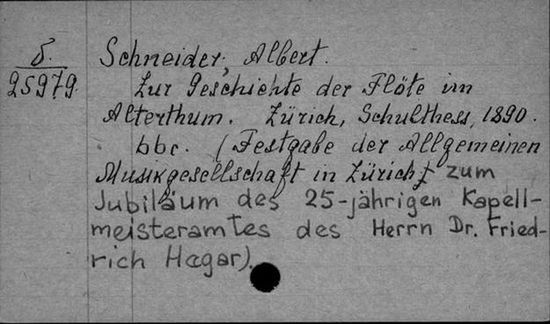 δ.
25979.
Schneider, Albert.
Zur Geschichte der Flöte im
Alterthum. Zürich, Schulthess, 1890.
bbc. (Festgabe der Allgemeinen
Musikgesellschaft in Zürich zum
Jubiläum des 25-jährigen Kapell-
meisteramtes des Herrn Dr. Fried-
rich Hegar).